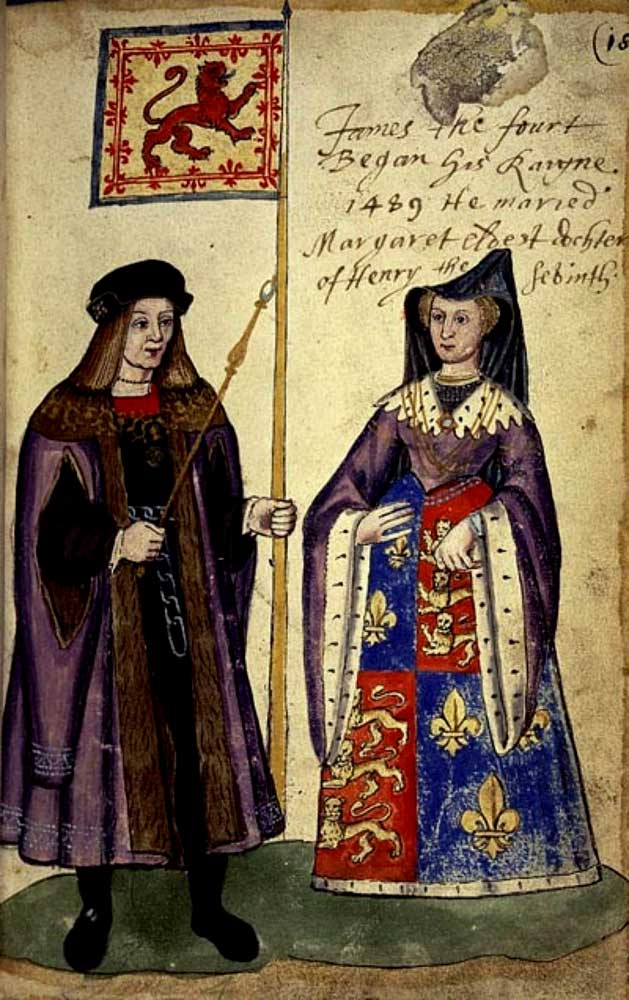 (18
James the fourt
Began his Raigne.
1489 He maried
Margaret eldest dochter
of Henry the Sebinth.